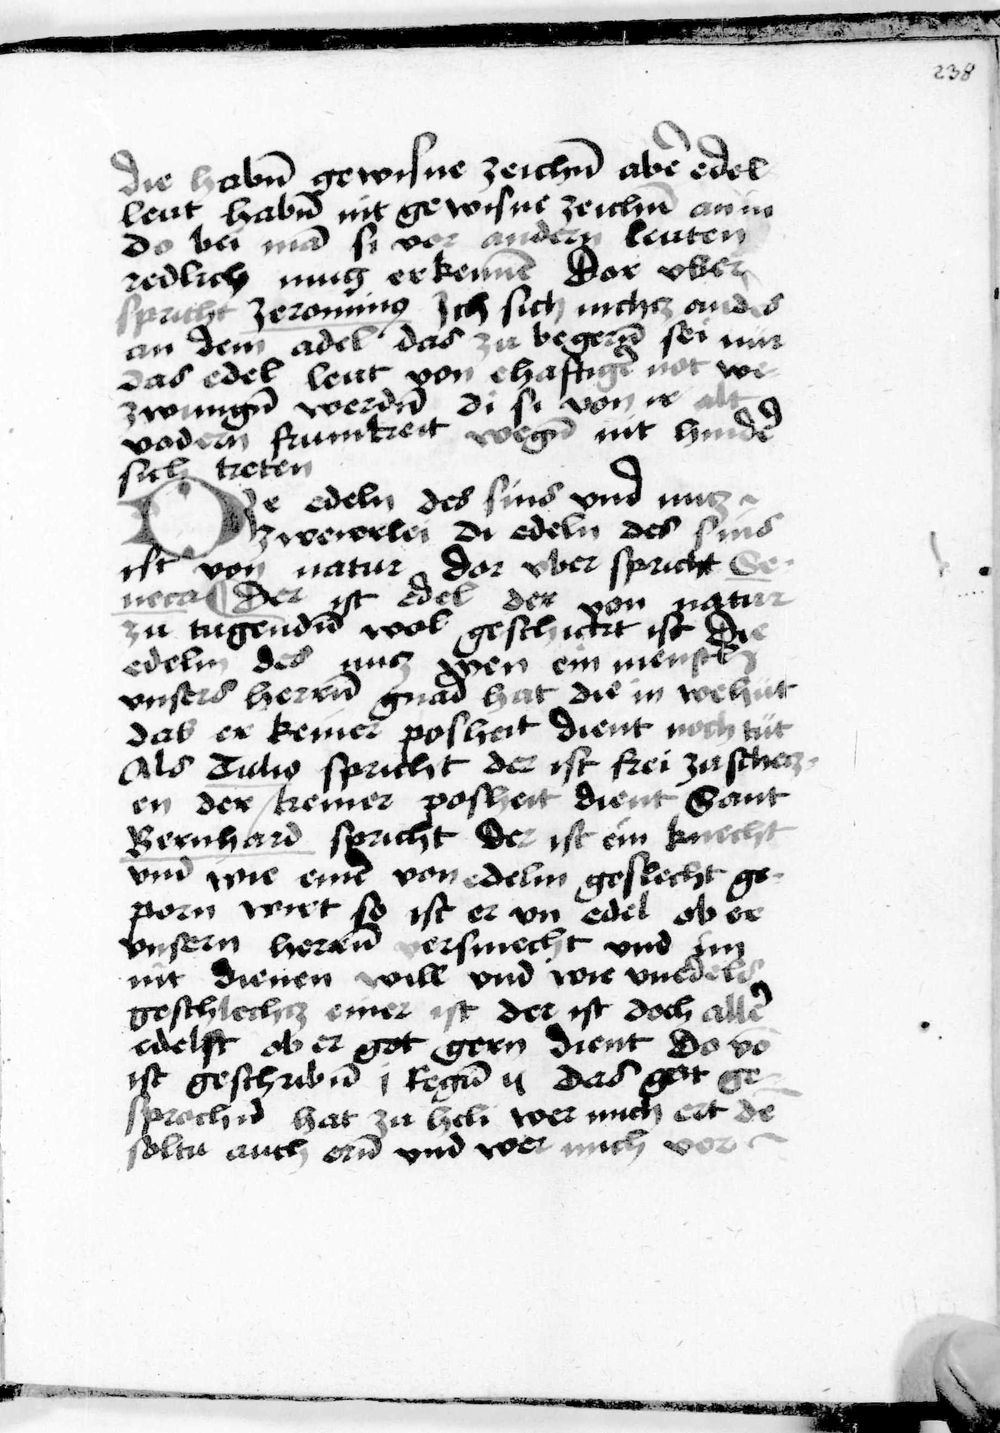 238
die habn̄ gewisne zeichn̄ abe᷑ edel
leut habn̄ nit gewisne zeichn̄ an in
do bei mā si vor andern leuten
redlich mug erkennē Dor vber
spricht Jeronimꝰ Ich sich nichtz anders
an dem adel das zu begern̄ sei nur
das edel leut von ehaftige᷑ not we
zwungn̄ werdn̄ di si von ir alt
vodern frumkeit wegn̄ nit hinde᷑
sich treten
Die edeln des sins vnd mutz
zweierlei di edeln des sins
ist von natur dor vber spricht Se-
neca Der ist edel der von natur
zu tugendn̄ wol geschickt ist Die
edelin des mutz wen ein mensch
vnsers herrn̄ gnad hat die in wehut
das er keiner posheit dient noch tut
Als Tulius spricht der ist frei zu schetz-
en der keiner posheit dient Sant
Bernhard spricht Der ist ein knecht
vnd wie eine᷑ von edelm geslecht ge-
porn wirt so ist er vn edel ob er
vnsern herrn̄ versmecht vnd im
nit dienen will vnd wie vnedels
geschlechtz einer ist der ist doch alle᷑
edelst ob er got gern dient Do vō
ist geschribn̄ j Regū ij das got ge-
sprochn̄ hat zu heli wer mich ert dē
soltu auch ern̄ vnd wer mich vor